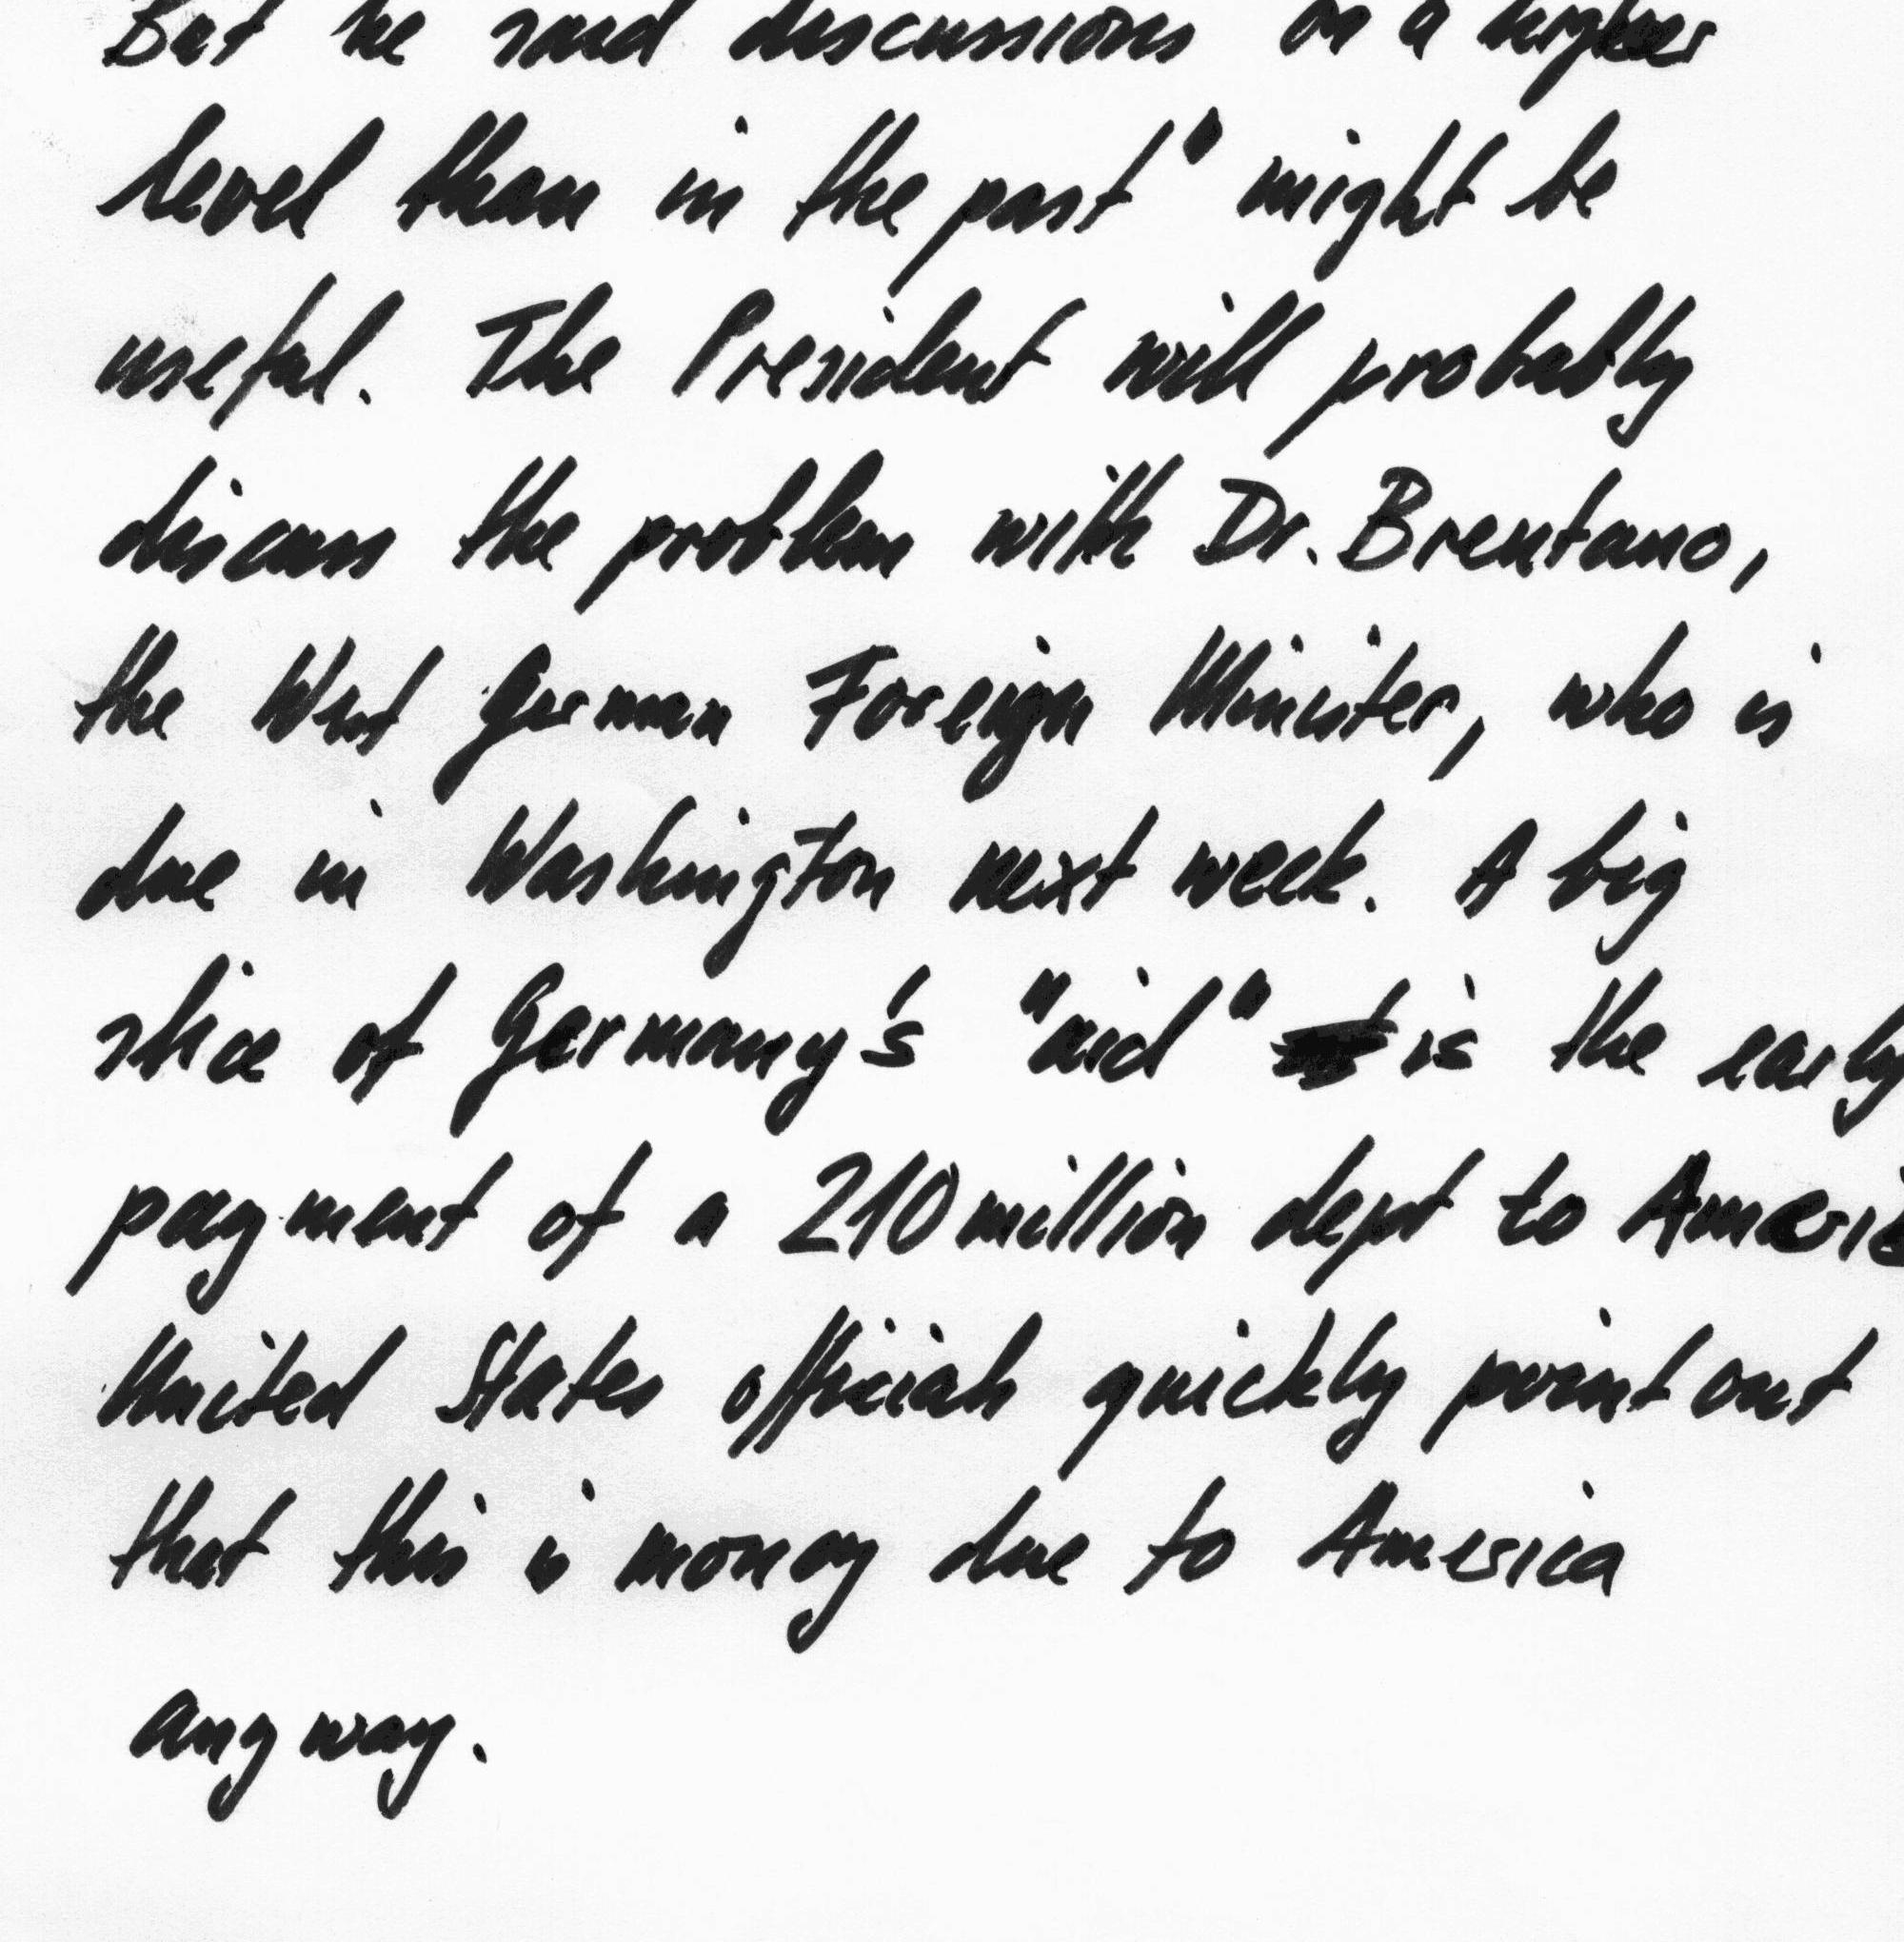 But he said discussions on a higher
level than in the past" might be
useful. The President will probably
discuss the problem with Dr. Brentano,
the West German Foreign Minister, who is
due in Washington next week. A big
slice of Germany's "aid" is the early
payment of a 210 million dept to Ameri
United States officials quickly point out
that this is money due to America
anyway.